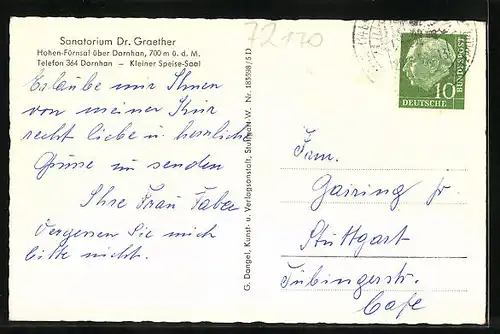 Sanatorium Dr. Graether
Hohen-Fürnsal über Dornhan, 700 m ü. d. M.
Telefon 364 Dornhan – Kleiner Speise-Saal
72170
Erlaube mir Ihnen
von meiner Kur
recht liebe u. herzliche
Grüsse zu senden
Ihre Frau Faber
Vergessen Sie mich
bitte nicht.
G. Dangel, Kunst- u. Verlagsanstalt, Stuttgart-W. Nr. 185598/5 D
10
DEUTSCHE
BUNDESPOST
Fam.
Gairing jr
Stuttgart
Tübingerstr.
Cafe